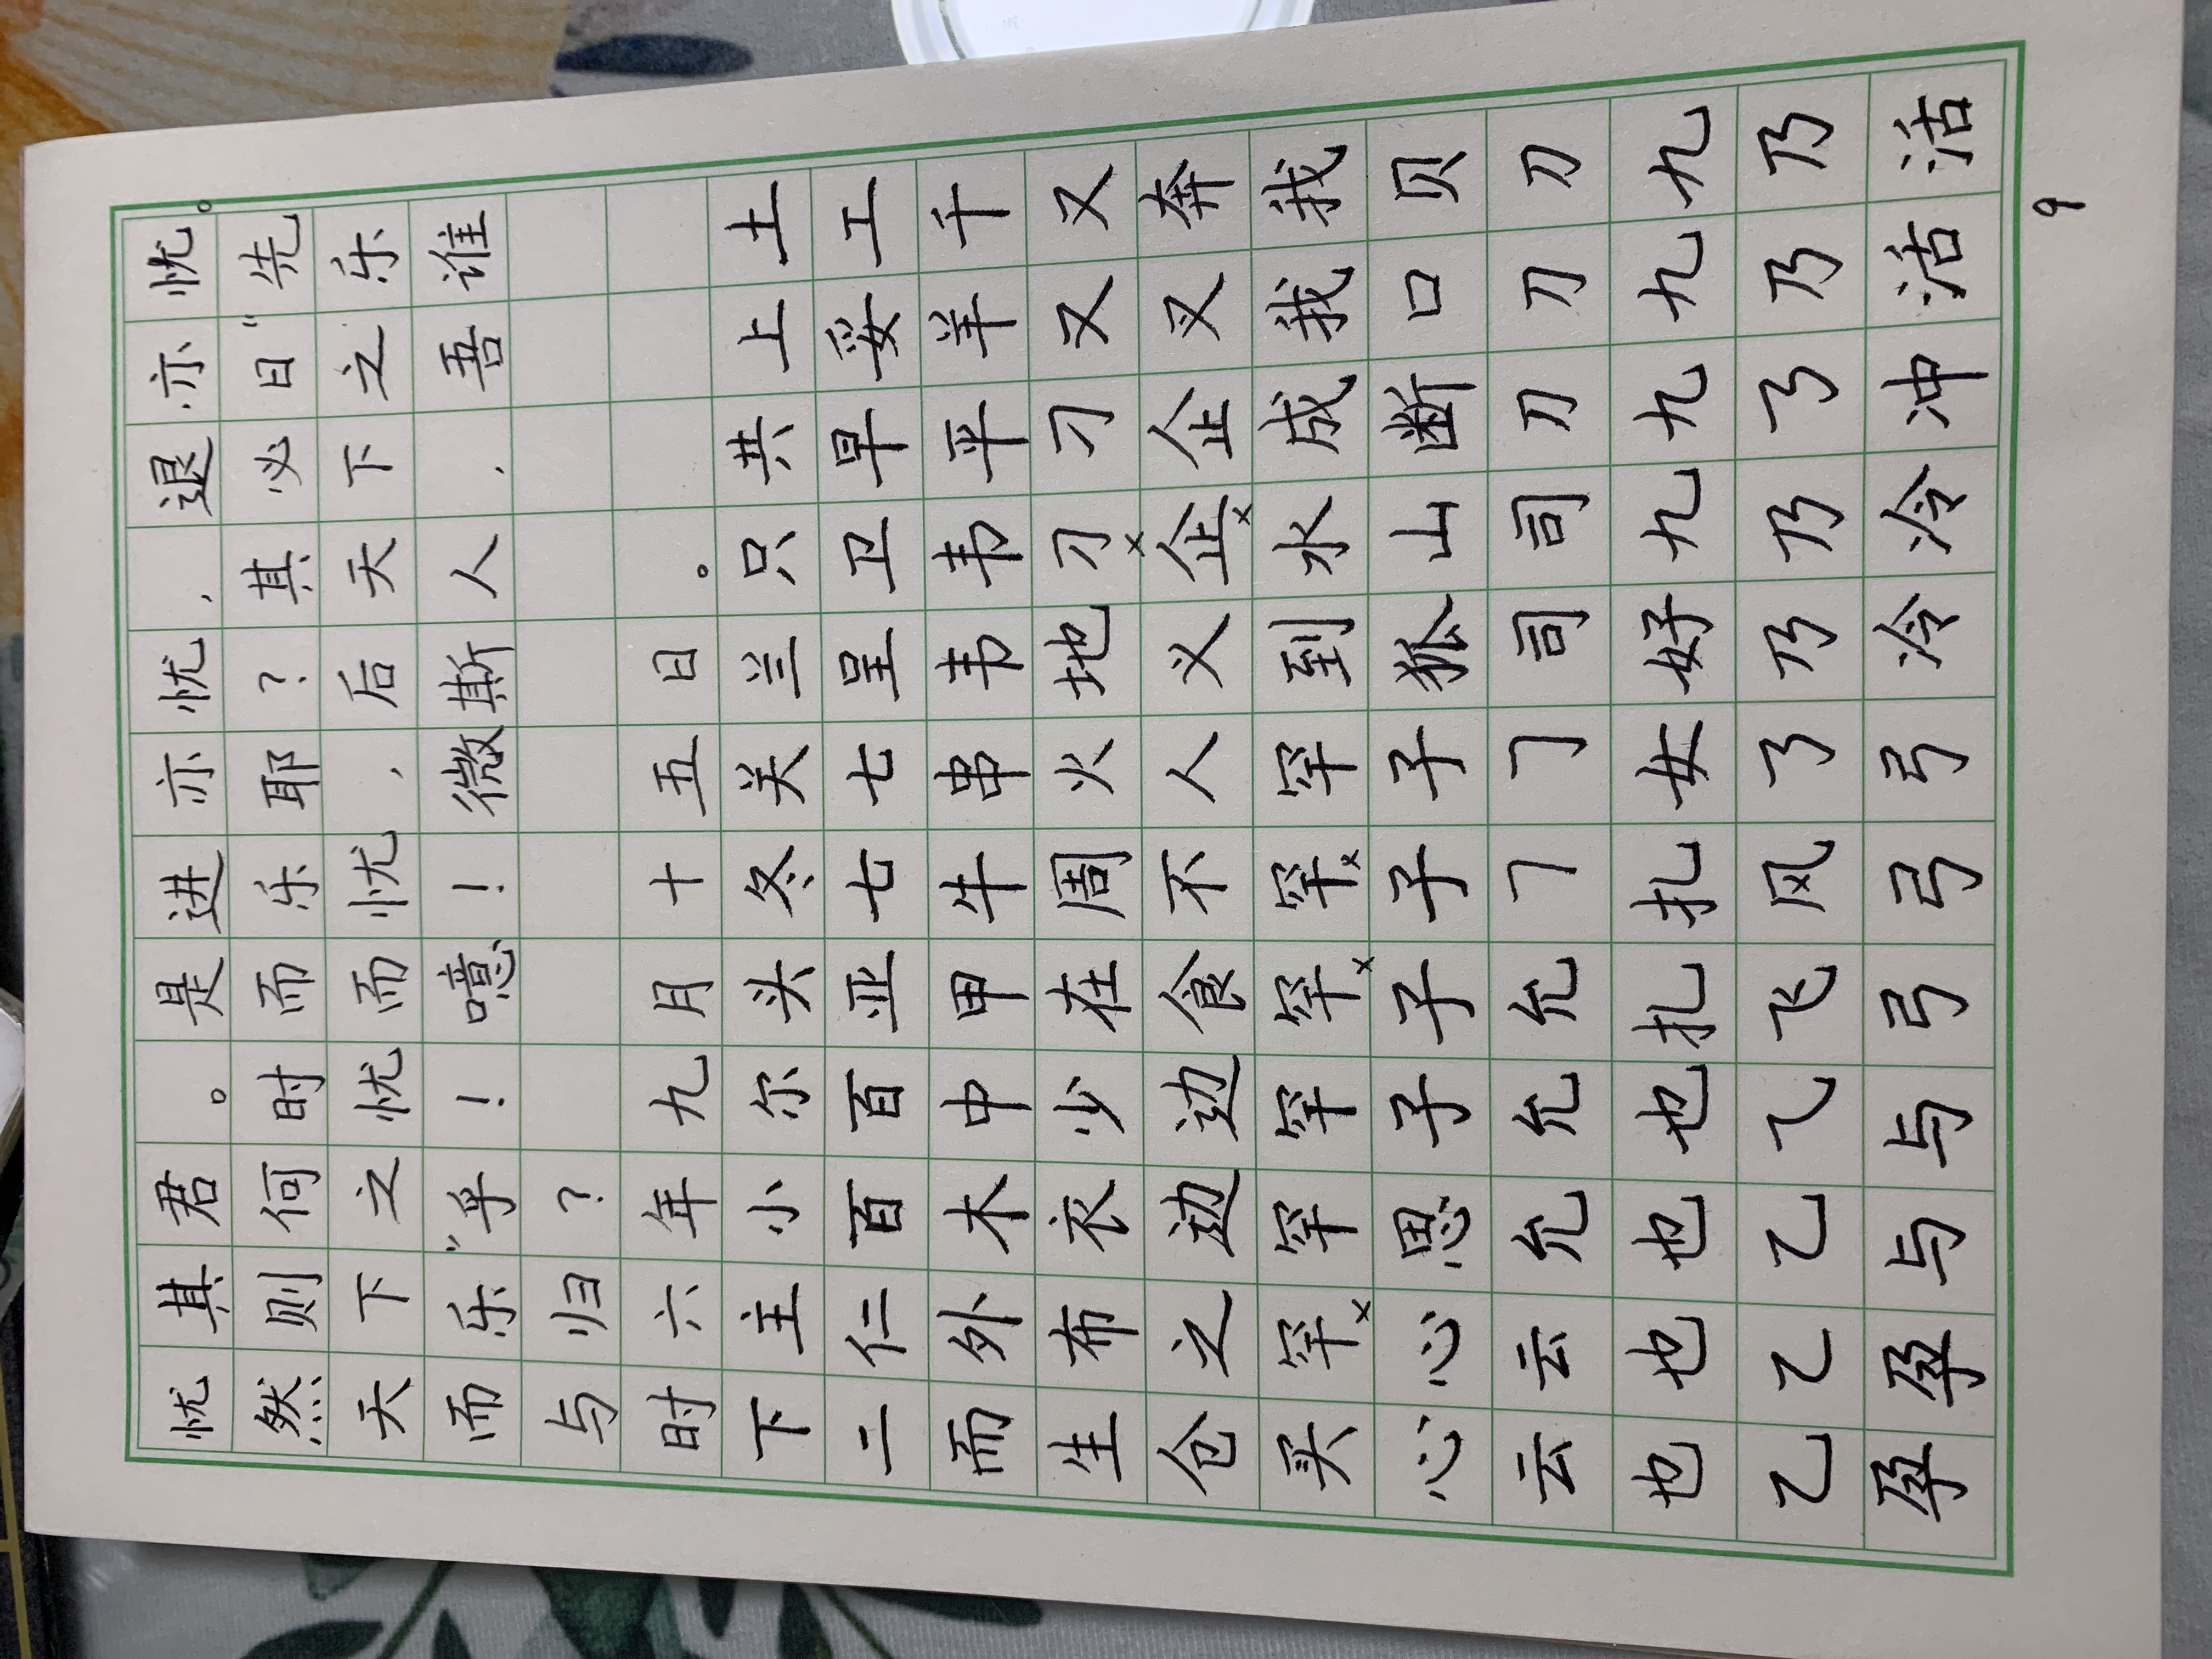 忧其君。是进亦忧，退亦忧。
然则何时而乐耶？其必日“先
天下之忧而忧，后天下之乐
而乐”乎！噫！微斯人，吾谁
与归？
时六年九月十五日。
下主小尔头冬关兰只共上土
二仁百百亚七七呈卫早妥工
而外木中甲牛串韦韦平羊千
生布衣少在周火地刁刁又又
仓之边边食不人义企企叉奔
买罕罕罕罕罕罕到水成我我
心心思子子子子狐山断口贝
云云允允允㇕𠃌司司刀刀刀
也也也也扎扎女好九九九九
乙乙乙⺄飞风㇋乃乃㇋乃乃
孕孕与与弓弓弓冷冷冲活活
9